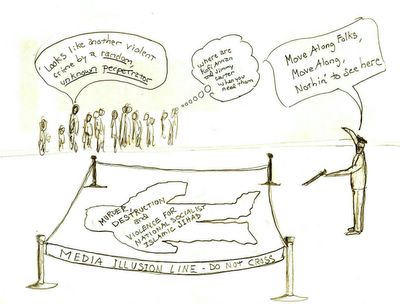 Looks like another violent
crime by a random,
unknown perpetrator
where are
Kofi Annan
and Jimmy
Carter
when you
need them
Move Along Folks,
Move Along,
Nothin' to see here
MURDER,
DESTRUCTION
and
VIOLENCE FOR
NATIONAL SOCIALIST
ISLAMIC JIHAD
MEDIA ILLUSION LINE - DO NOT CROSS